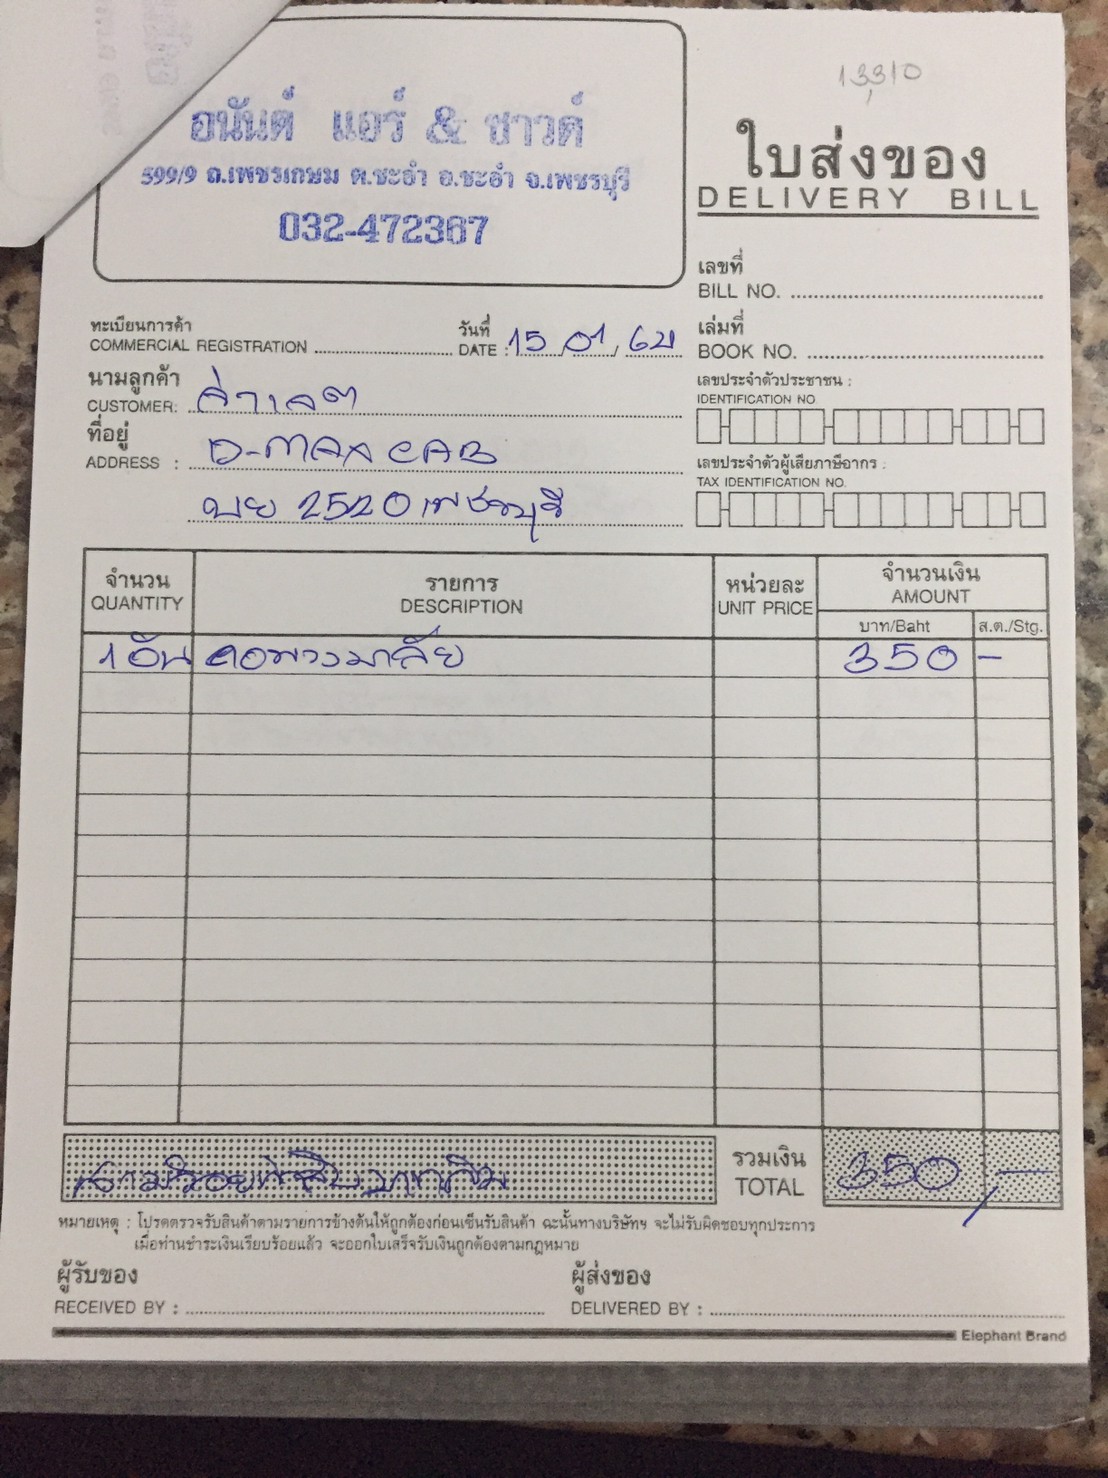 13,310
อนันต์ แอร์ & ซาวด์
599/9 ถ.เพชรเกษม ต.ชะอำ อ.ชะอำ จ.เพชรบุรี
032-472367
ใบส่งของ
DELIVERY BILL
เลขที่
BILL NO.
ทะเบียนการค้า
COMMERCIAL REGISTRATION
วันที่
DATE : 15 / 01 / 62
เล่มที่
BOOK NO.
นามลูกค้า
CUSTOMER:
ที่อยู่
ADDRESS : D-MAX CAB
บย 2520 เพชรบุรี
เลขประจำตัวประชาชน :
IDENTIFICATION NO
เลขประจำตัวผู้เสียภาษีอากร :
TAX IDENTIFICATION NO.
จำนวน รายการ หน่วยละ จำนวนเงิน
QUANTITY DESCRIPTION UNIT PRICE AMOUNT
บาท/Baht ส.ต./Stg.
1 อัน คอพวงมาลัย 350 -
สามร้อยห้าสิบบาทถ้วน
รวมเงิน
TOTAL 350,-
หมายเหตุ : โปรดตรวจรับสินค้าตามรายการข้างต้นให้ถูกต้องก่อนเซ็นรับสินค้า ฉะนั้นทางบริษัทฯ จะไม่รับผิดชอบทุกประการ
เมื่อท่านชำระเงินเรียบร้อยแล้ว จะออกใบเสร็จรับเงินถูกต้องตามกฎหมาย
ผู้รับของ
RECEIVED BY :
ผู้ส่งของ
DELIVERED BY :
Elephant Brand